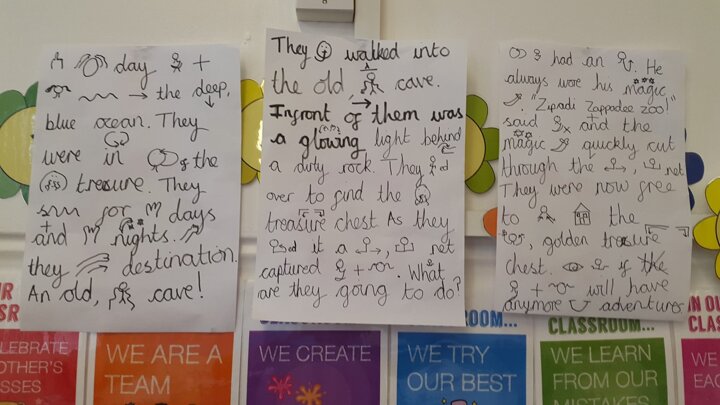 day +
→ the deep,
blue ocean. They
were in of the
treasure. They
for days
and nights.
they destination.
An old, cave!
They walked into
the old, cave.
Infront of them was
a glowing light behind
a dirty rock. They
over to find the
treasure chest. As they
it a , net
captured + . What
are they going to do?
had an . He
always wore his magic
. "Zipadi Zappadee zoo!"
said + and the
magic quickly cut
through the , net
They were now free
to the
, golden treasure
chest. if the
+ will have
anymore adventures
CLASSROOM...
WE ARE A
TEAM
WE CREATE
WE TRY
OUR BEST
WE LEARN
FROM OUR
MISTAKES